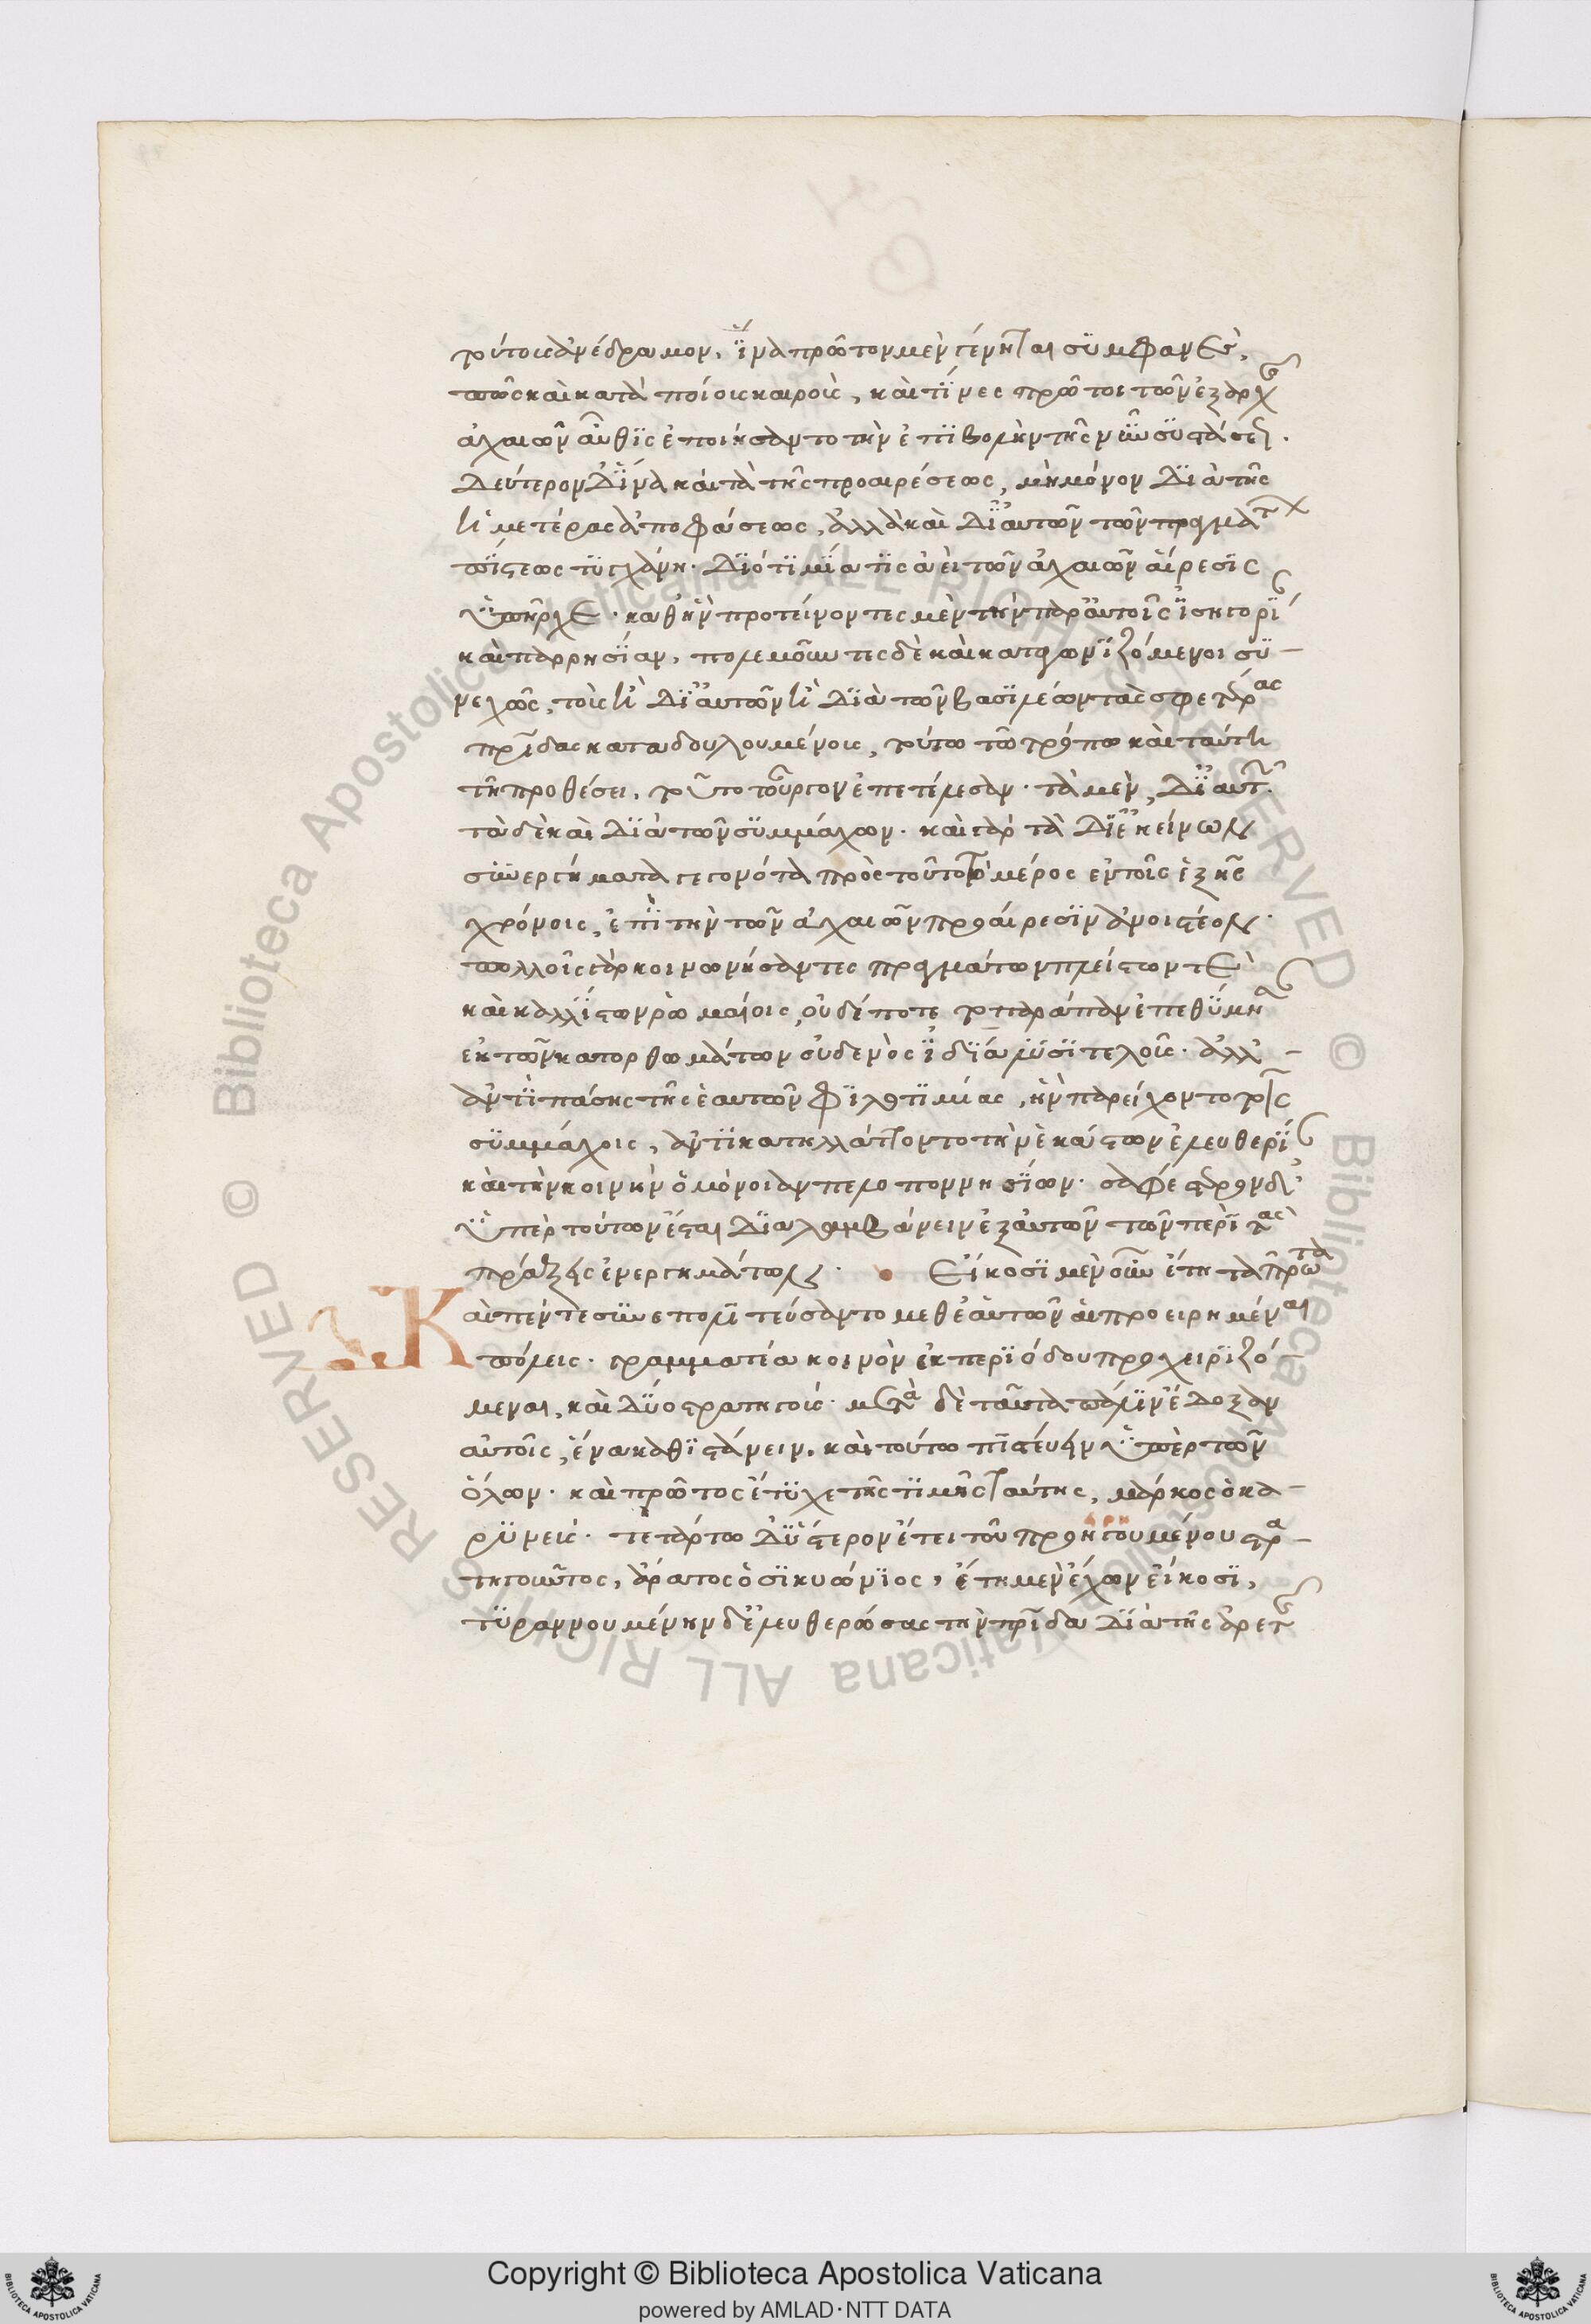 τούτοις ἀνέδραμον, ἵνα πρῶτον μὲν γένηται συμφανὲς,
πῶς καὶ κατὰ ποίους καιροὺς, καὶ τίνες πρῶτοι τῶν ἐξαρχ
ἀχαιῶν αὖθις ἐποιήσαντο τὴν ἐπιβολὴν τῆς νῦν συστάσεως.
Δεύτερον δ' ἵνα καὶ τὰ τῆς προαιρέσεως, μὴ μόνον διὰ τῆς
ἡμετέρας ἀποφάσεως, ἀλλὰ καὶ δι' αὐτῶν τῶν πραγμάτ
πίστεως τυγχάνη. διότι μία τις ἀεὶ τῶν ἀχαιῶν αἵρεσις
ὑπῆρχε. καθ' ἣν προτείνοντες μὲν τὴν παρ' αὐτοῖς ἰσηγορί
καὶ παρρησίαν, πολεμοῦντες δὲ καὶ καταγωνιζόμενοι συ-
νεχῶς, τοὺς ἢ δι' αὐτῶν ἢ διὰ τῶν βασιλέων τὰς σφετέρας
πρίδας καταδουλουμένοις, τούτω τῶ τρόπω καὶ ταύτη
τῆ προθέσει, τοῦτο τοὖργον ἐπετέλεσαν. τὰ μὲν, δι' αὐτ.
τὰ δὲ καὶ διὰ τῶν συμμάχων. καὶ γὰρ τὰ δι' ἐκείνων
συνεργήματα γεγονότα πρὸς τοῦτο τὸ μέρος ἐν τοῖς ἑξῆς
χρόνοις, ἐπὶ τὴν τῶν ἀχαιῶν προαίρεσιν ἀνοιστέον.
πολλοῖς γὰρ κοινωνήσαντες πραγμάτων πλείστων τὲ
καὶ καλλίστων ῥωμαίοις, οὐδέποτε τοπαράπαν ἐπεθύμη
ἐκ τῶν κατορθωμάτων οὐδενὸς ἰδία λυσιτελοῦς. ἀλλ' -
ἀντὶ πάσης τῆς ἑαυτῶν φιλοτιμίας, ἣν παρείχοντο τοῖς
συμμάχοις, ἀντικατηλλάττοντο τὴν ἑκάστων ἐλευθερί
καὶ τὴν κοινὴν ὁμόνοιαν πελοποννησίων. σαφέστερον δ'
ὑπὲρ τούτων ἔσται διαλαμβάνειν ἐξ αὐτῶν τῶν περὶ τὰς
πράξεις ἐνεργημάτων. Εἴκοσι μὲν οὖν ἔτη τὰ πρῶτα
καὶ πέντε συνεπολιτεύσαντο μεθ' ἑαυτῶν αἱ προειρημέναι
πόλεις. γραμματέα κοινὸν ἐκ περιόδου προχειριζό-
μεναι, καὶ δύο στρατηγοὺς. μετὰ δὲ ταῦτα πάλιν ἔδοξαν
αὐτοῖς, ἕνα καθιστάνειν, καὶ τούτω πιστεύειν ὑπὲρ τῶν
ὅλων. καὶ πρῶτος ἔτυχε τῆς τιμῆς ταύτης, μάρκος ὁ κα-
ρυνεὺς. τετάρτω δ' ὕστερον ἔτει τοῦ προηγουμένου στρα-
τηγοῦντος, ἄρατος ὁ σικυώνιος, ἔτη μὲν ἔχων εἴκοσι,
τυραννουμένην δ' ἐλευθερώσας τὴν πρίδα διὰ τῆς ἀρετ
Copyright © Biblioteca Apostolica Vaticana
powered by AMLAD·NTT DATA